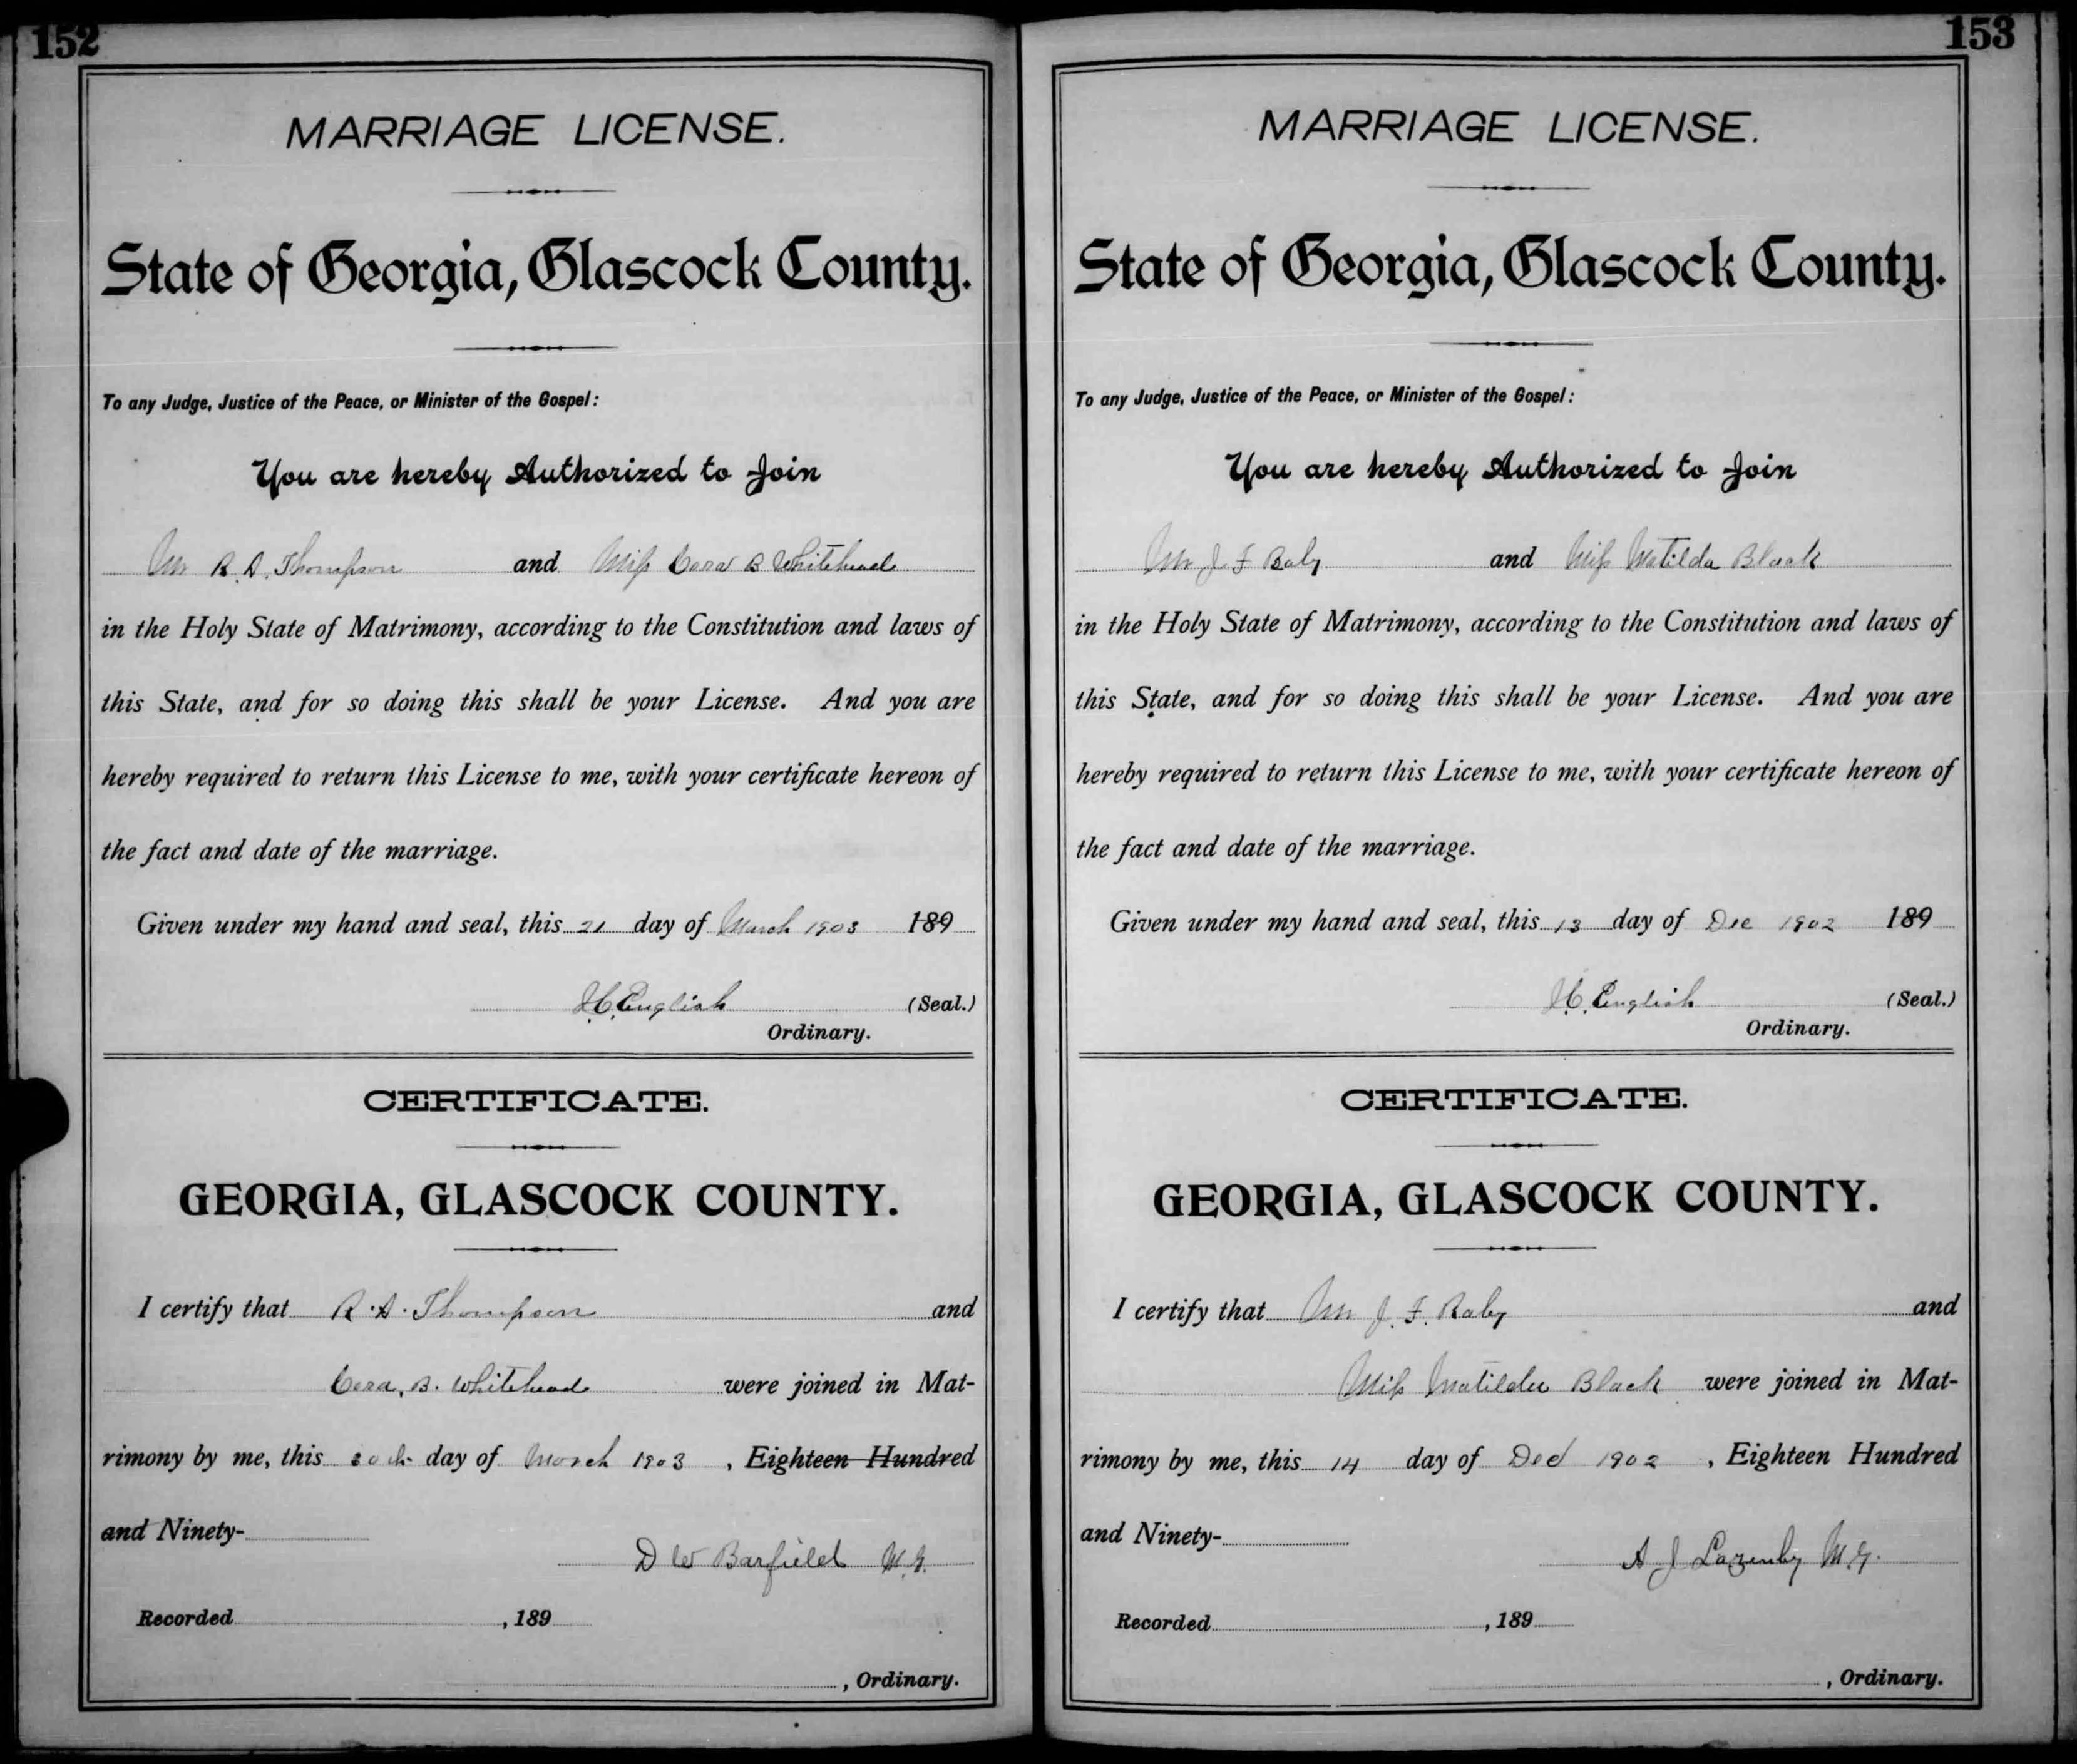 152
MARRIAGE LICENSE.
State of Georgia, Glascock County.
To any Judge, Justice of the Peace, or Minister of the Gospel:
You are hereby Authorized to Join
Mr R. A. Thompson and Miss Cora B Whitehead
in the Holy State of Matrimony, according to the Constitution and laws of
this State, and for so doing this shall be your License. And you are
hereby required to return this License to me, with your certificate hereon of
the fact and date of the marriage.
Given under my hand and seal, this 21 day of March 1903 189
J.C. English (Seal.)
Ordinary.
CERTIFICATE.
GEORGIA, GLASCOCK COUNTY.
I certify that R. A. Thompson and
Cora, B. Whitehead were joined in Mat-
rimony by me, this day of March 1903, Eighteen Hundred
and Ninety-
D W Barfield M.G.
Recorded , 189
, Ordinary.
153
MARRIAGE LICENSE.
State of Georgia, Glascock County.
To any Judge, Justice of the Peace, or Minister of the Gospel:
You are hereby Authorized to Join
Mr J. F Raby and Miss Matilda Black
in the Holy State of Matrimony, according to the Constitution and laws of
this State, and for so doing this shall be your License. And you are
hereby required to return this License to me, with your certificate hereon of
the fact and date of the marriage.
Given under my hand and seal, this 13 day of Dec 1902 189
J.C. English (Seal.)
Ordinary.
CERTIFICATE.
GEORGIA, GLASCOCK COUNTY.
I certify that Mr J. F. Raby and
Miss Matilda Black were joined in Mat-
rimony by me, this 14 day of Dec 1902, Eighteen Hundred
and Ninety-
A J Lazenby M.G.
Recorded , 189
, Ordinary.